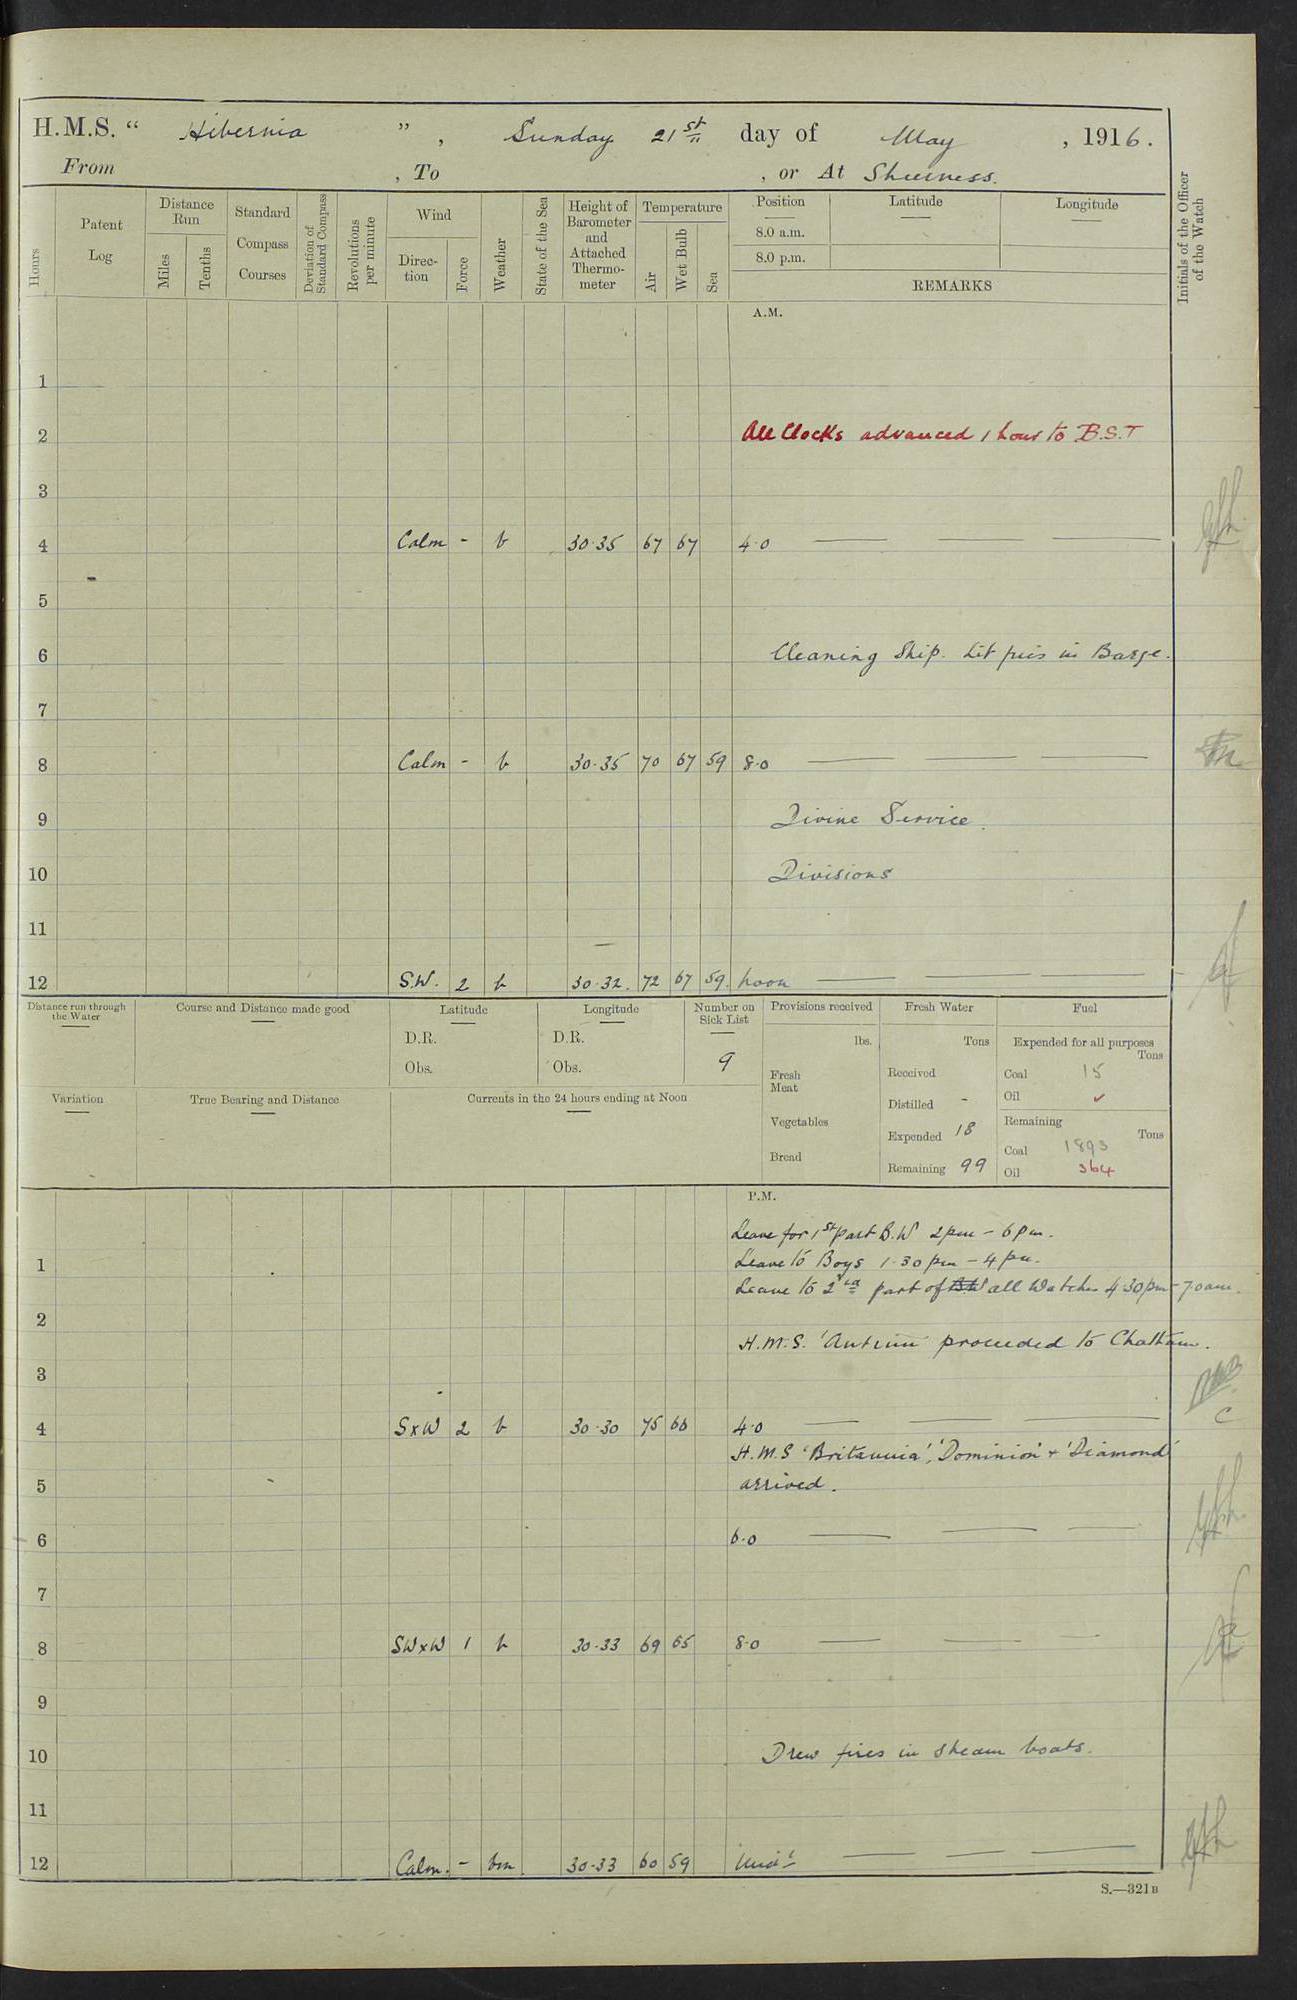 H.M.S. " Hibernia ", Sunday 21st day of May, 1916.
From , To , or At Sheerness.
Hours
Patent Log
Distance Run
Miles
Tenths
Standard Compass Courses
Deviation of Standard Compass
Revolutions per minute
Wind
Direction
Force
Weather
State of the Sea
Height of Barometer and Attached Thermometer
Temperature
Air
Wet Bulb
Sea
Position
8.0 a.m.
8.0 p.m.
Latitude
Longitude
REMARKS
Initials of the Officer of the Watch
A.M.
1
2 All Clocks advanced 1 hour to B.S.T
3
4 Calm - b 30.35 67 67 4.0
5
6 Cleaning Ship. Lit fires in Barge.
7
8 Calm - b 30.35 70 67 59 8.0
9 Divine Service.
10 Divisions
11
12 S.W. 2 b 30.32. 72 67 59. noon
Distance run through the Water
Course and Distance made good
Latitude
D.R.
Obs.
Longitude
D.R.
Obs.
Number on Sick List
9
Provisions received
lbs.
Fresh Meat
Vegetables
Bread
Fresh Water
Tons
Received
Distilled -
Expended 18
Remaining 99
Fuel
Expended for all purposes
Tons
Coal 15
Oil ✓
Remaining
Tons
Coal 1893
Oil 364
Variation
True Bearing and Distance
Currents in the 24 hours ending at Noon
P.M.
Leave for 1st part B.W 2pm - 6pm.
1 Leave to Boys 1.30pm - 4pm.
Leave to 2nd part of BW all Watches 4.30pm - 7.0am.
2 H.M.S. 'Antrim' proceeded to Chatham.
3
4 SxW 2 b 30.30 75 66 4.0
H.M.S 'Britannia', 'Dominion' & 'Diamond'
5 arrived.
6 6.0
7
8 SWxW 1 b 30.33 69 65 8.0
9
10 Drew fires in steam boats.
11
12 Calm. - bm 30.33 60 59 Midt
S.—321B